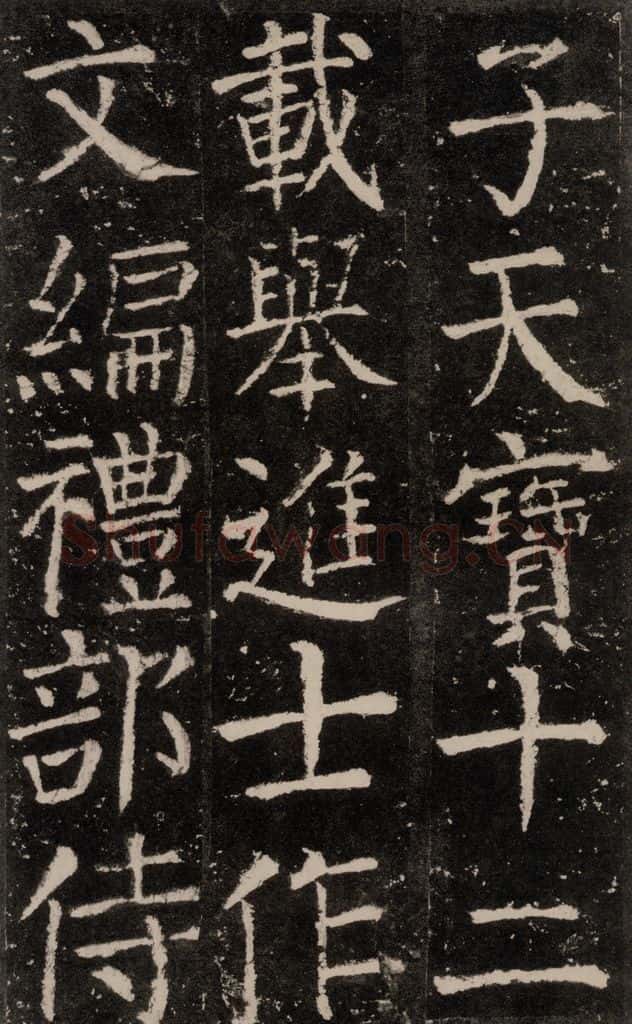 子天寶十二
載舉進士作
文編禮部侍
Shufawang.CN